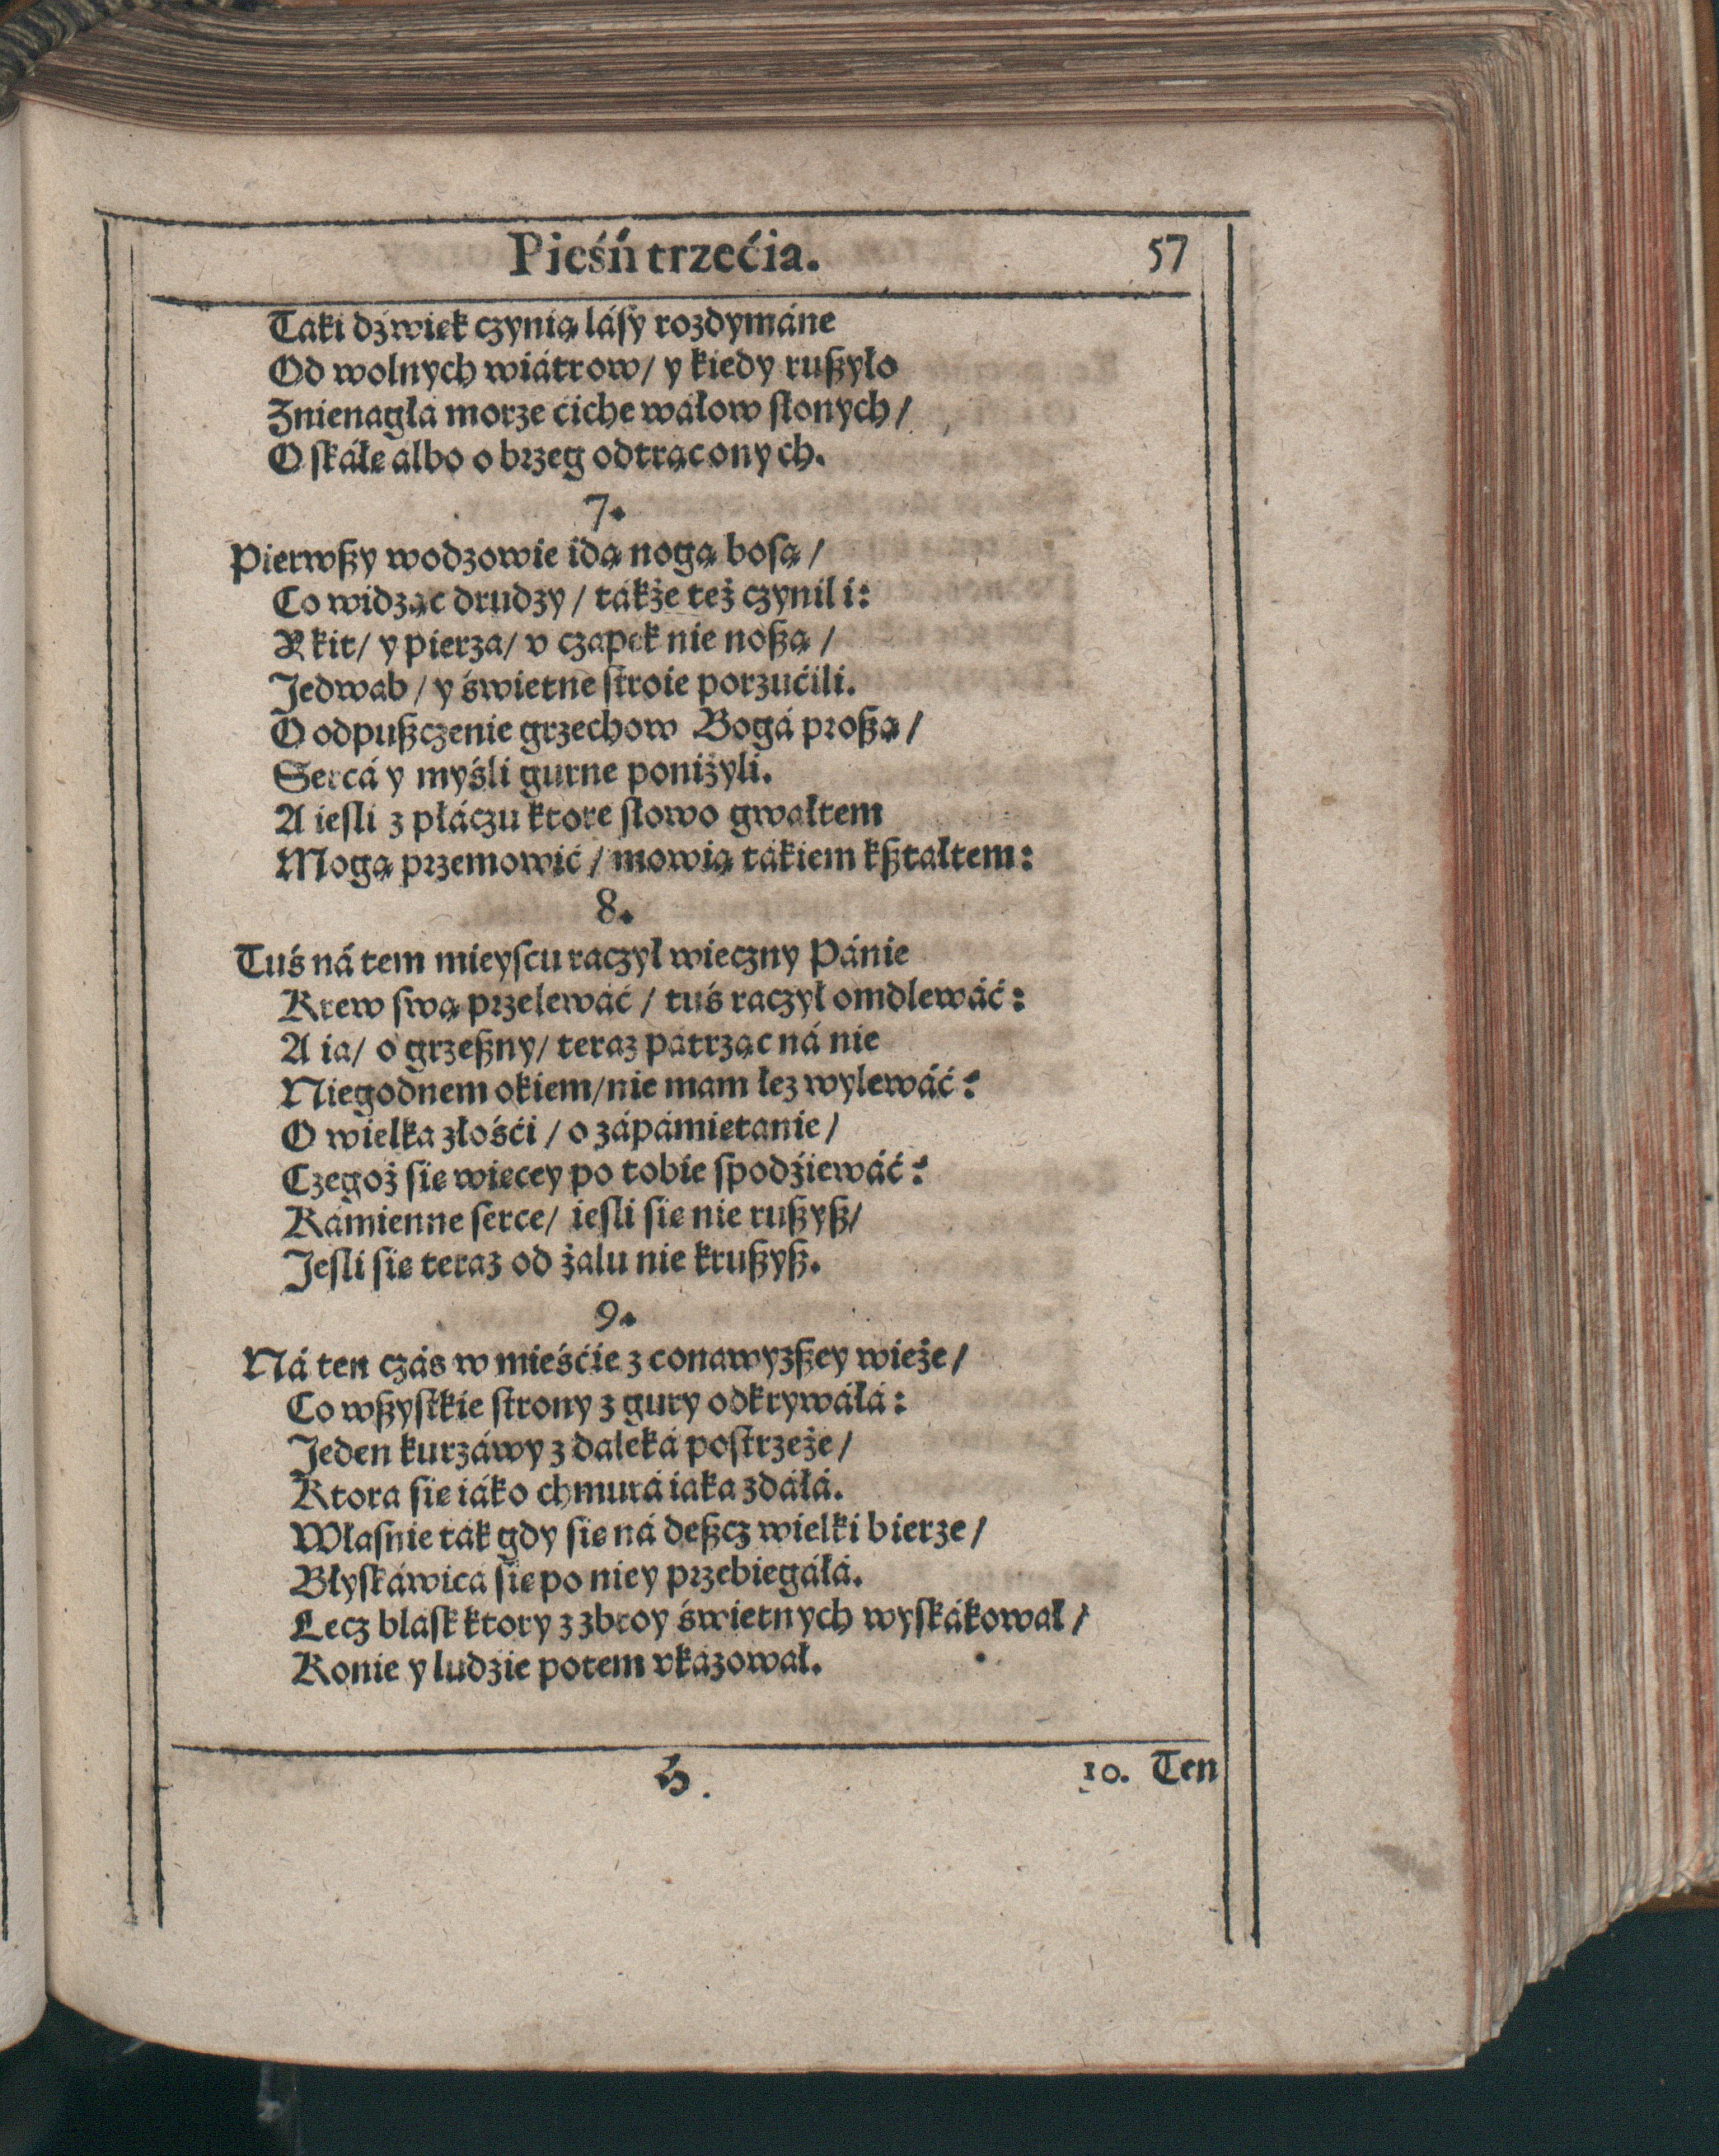 Pieśń trzećia. 57
Taki dźwięk czynią lásy rozdymáne
Od wolnych wiátrow/ y kiedy rußyło
Znienagłá morze ciche wałow słonych/
O skáłę álbo o brzeg odtrąconych.
7.
Pierwßy wodzowie idą nogą bosą/
Co widząc drudzy/ tákże też czynili:
Y kit/ y pierza/ v czapek nie noßą/
Jedwab/ y świetne stroie porzućili.
O odpußczenie grzechow Bogá proßą/
Sercá y myśli gurne poniżyli.
A iesli z płáczu ktore słowo gwałtem
Mogą przemowić/ mowią tákiem kßtałtem:
8.
Tuś ná tem mieyscu raczył wieczny Pánie
Krew swą przelewáć/ tuś raczył omdlewáć:
A ia/ o grzeßny/ teraz pátrząc ná nie
Niegodnem okiem/ nie mam łez wylewáć?
O wielka złośći/ o zápámiętanie/
Czegoż się więcey po tobie spodźiewáć?
Kámienne serce/ iesli się nie rußyß/
Jesli się teraz od żalu nie krußyß.
9.
Ná ten czás w mieśćie z conawyzßey wieże/
Co wßystkie strony z gury odkrywáłá:
Jeden kurzáwy z daleká postrzeże/
Ktora się iáko chmurá iaka zdáłá.
Własnie ták gdy się ná deßcz wielki bierze/
Błyskáwicá się po niey przebiegáłá.
Lecz blask ktory z zbroy świetnych wyskákował/
Konie y ludzie potem vkázował.
H.
10. Ten